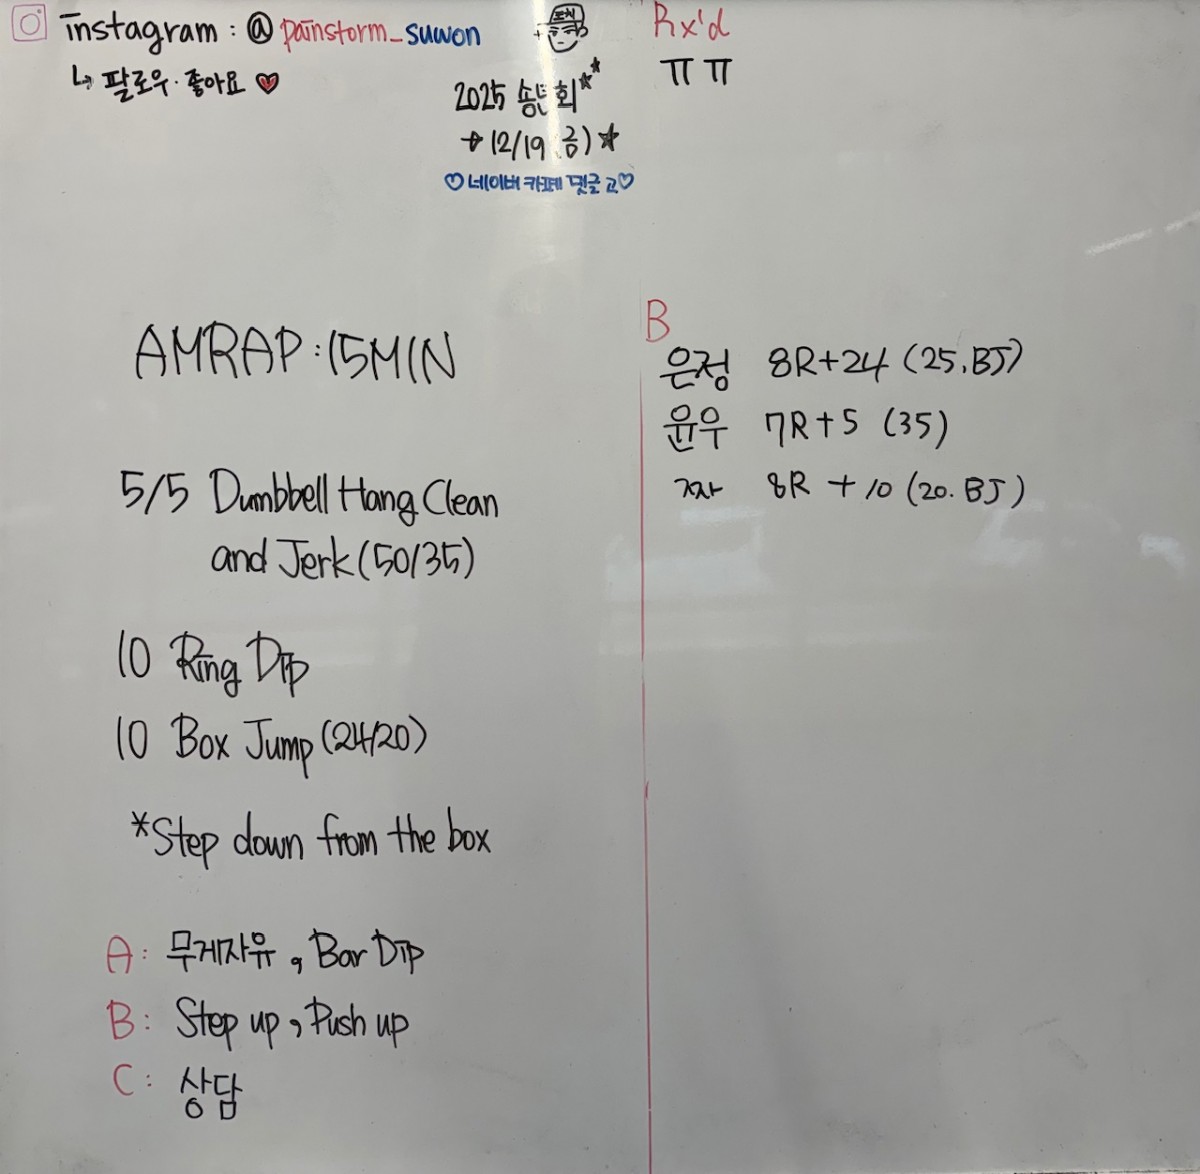 instagram : @ painstorm_suwon
↳ 팔로우·좋아요 ♥
2025 송년회
→ 12/19(금) ★
♡네이버 카페 댓글 고♡
Rx'd
ㅠㅠ
AMRAP : 15MIN
5/5 Dumbbell Hang Clean
and Jerk (50/35)
10 Ring Dip
10 Box Jump (24/20)
*Step down from the box
A : 무게자유, Bar Dip
B : Step up, Push up
C : 상담
B
은정 8R+24 (25.BJ)
윤우 7R+5 (35)
8R + 10 (20. BJ)